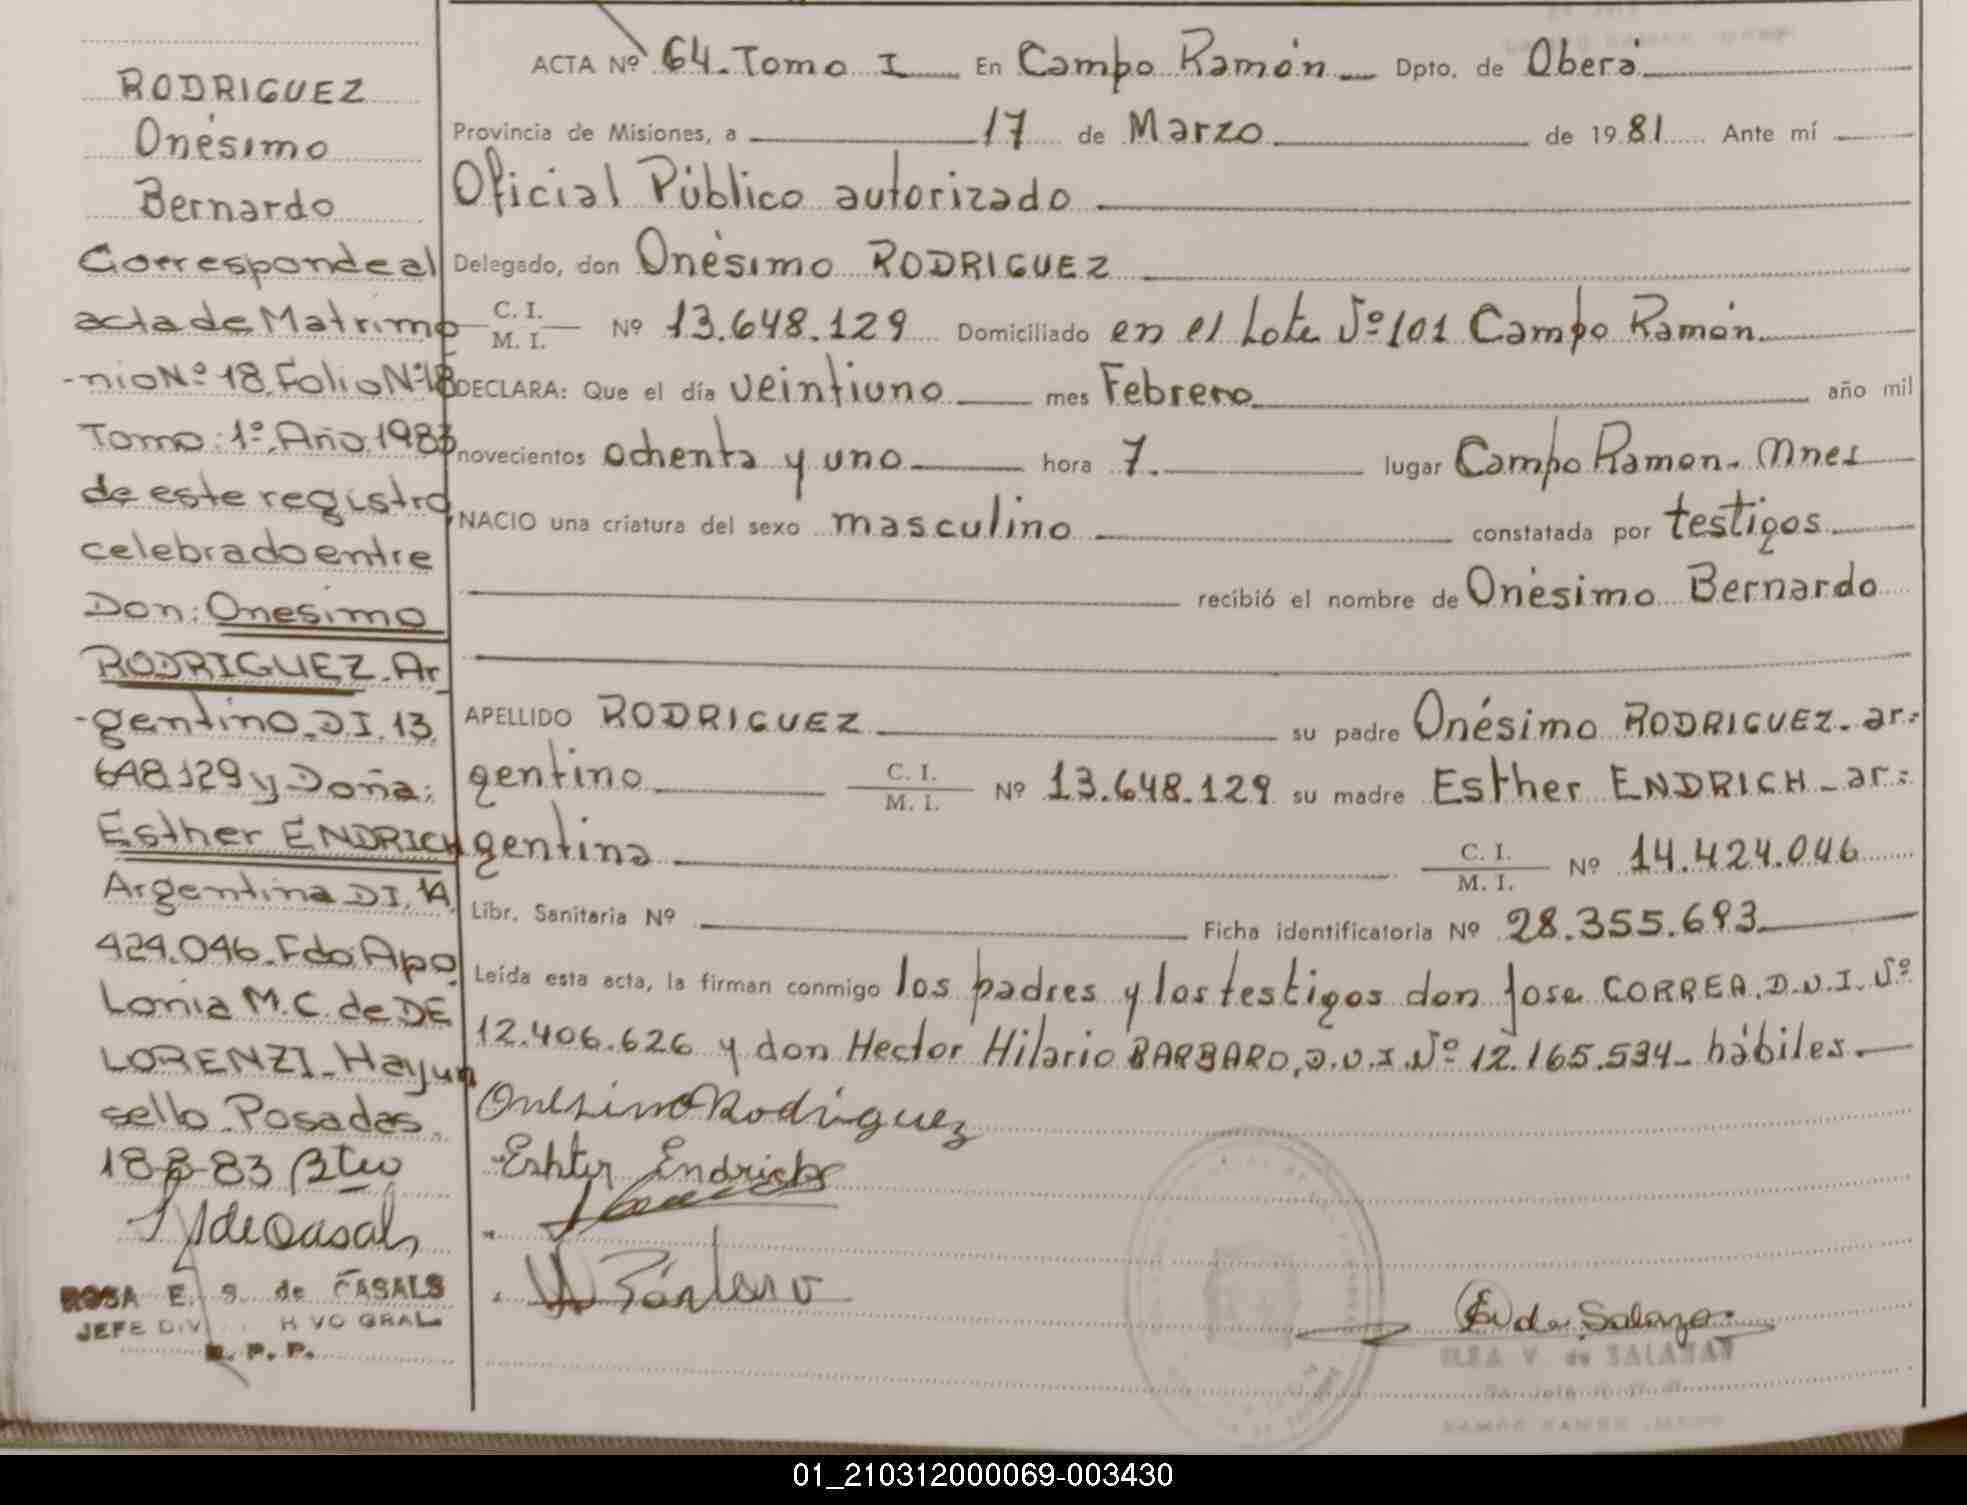 RODRIGUEZ
Onésimo
Bernardo
Corresponde al
acta de Matrimo
-nio Nº 18 Folio Nº 18
Tomo: 1º Año 1983
de este registro
celebrado entre
Don: Onesimo
RODRIGUEZ. Ar
-gentino. DI. 13.
648.129 y Doña:
Esther ENDRICH
Argentina DI. 14.
424.046. Fdo. Apo
Lonia M.C. de DE
LORENZI - Hay un
sello. Posadas.
18-8-83
ROSA E. S. de CASALS
JEFE DIV H VO GRAL
R. P. P.
ACTA Nº 64. Tomo I En Campo Ramón Dpto. de Oberá
Provincia de Misiones, a 17 de Marzo de 1981 Ante mí
Oficial Público autorizado
Delegado, don Onésimo RODRIGUEZ
C. I.
M. I. Nº 13.648.129 Domiciliado en el Lote Nº 101 Campo Ramón
DECLARA: Que el día veintiuno mes Febrero año mil
novecientos ochenta y uno hora 7. lugar Campo Ramon. Mnes
NACIO una criatura del sexo masculino constatada por testigos
recibió el nombre de Onésimo Bernardo
APELLIDO RODRIGUEZ su padre Onésimo RODRIGUEZ - ar=
gentino C. I.
M. I. Nº 13.648.129 su madre Esther ENDRICH - ar=
gentina C. I.
M. I. Nº 14.424.046
Libr. Sanitaria Nº Ficha identificatoria Nº 28.355.693
Leída esta acta, la firman conmigo los padres y los testigos don Jose CORREA. D.N.I. Nº
12.406.626 y don Hector Hilario BARBARO, D.N.I. Nº 12.165.534 - hábiles.
Onesimo Rodriguez
Eshter Endrich
de Salazar
de SALAZAR
01_210312000069-003430